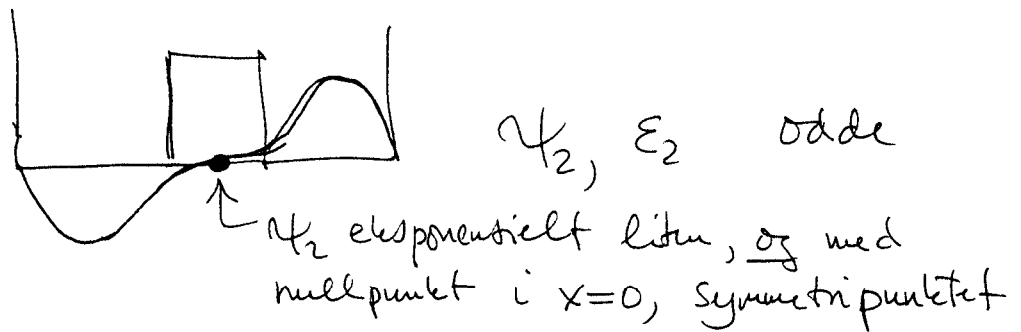 ψ₂, ε₂ odde
ψ₂ eksponentielt liten, og med
nullpunkt i x=0, symmetripunktet